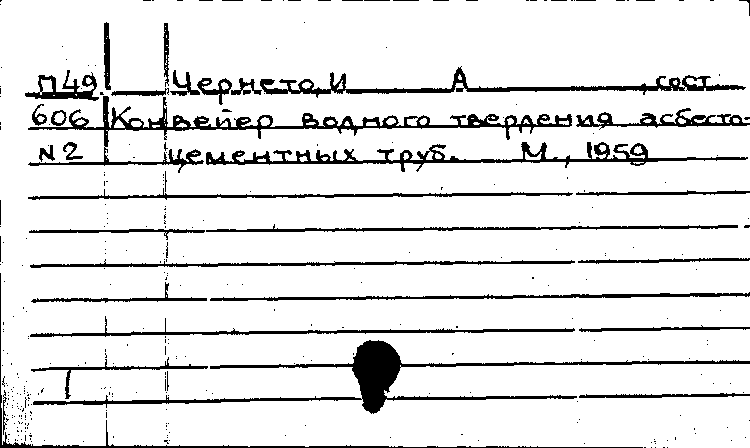 П49 Чернето, И А , сост.
606 Конвейер водного твердения асбесто-
N2 цементных труб. М., 1959